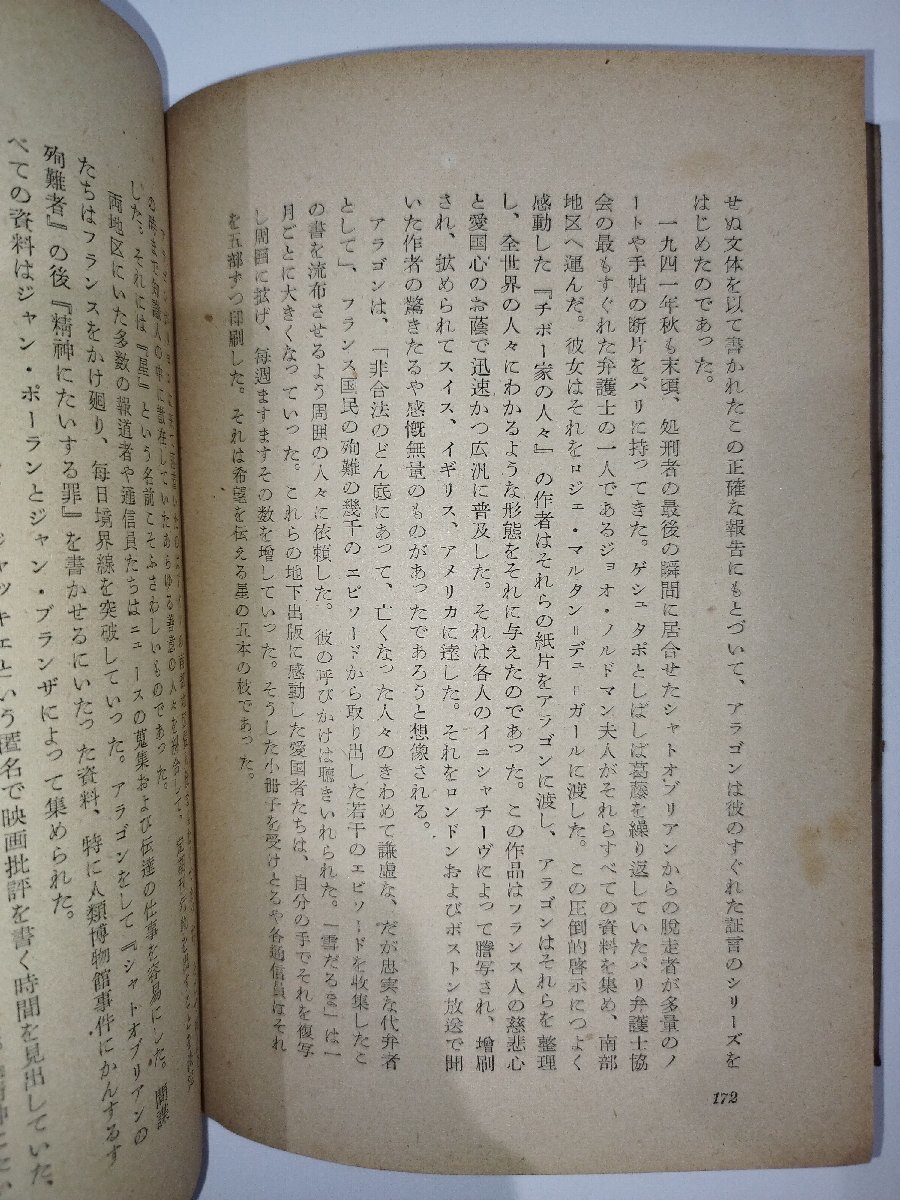 せぬ文体を以て書かれたこの正確な報告にもとづいて、アラゴンは彼のすぐれた証言のシリーズを
はじめたのであった。
一九四一年秋も末頃、処刑者の最後の瞬間に居合せたシャトオブリアンからの脱走者が多量のノ
ートや手帖の断片をパリに持ってきた。ゲシュタポとしばしば葛藤を繰り返していたパリ弁護士協
会の最もすぐれた弁護士の一人であるジョオ・ノルドマン夫人がそれらすべての資料を集め、南部
地区へ運んだ。彼女はそれをロジェ・マルタン＝デュ＝ガールに渡した。この圧倒的啓示につよく
感動した『チボー家の人々』の作者はそれらの紙片をアラゴンに渡し、アラゴンはそれらを整理
し、全世界の人々にわかるような形態をそれに与えたのであった。この作品はフランス人の慈悲心
と愛国心のお蔭で迅速かつ広汎に普及した。それは各人のイニシャチーヴによって謄写され、増刷
され、拡められてスイス、イギリス、アメリカに達した。それをロンドンおよびボストン放送で聞
いた作者の驚きたるや感慨無量のものがあったであろうと想像される。
アラゴンは、「非合法のどん底にあって、亡くなった人々のきわめて謙虚な、だが忠実な代弁者
として」、フランス国民の殉難の幾千のエピソードから取り出した若干のエピソードを収集したこ
の書を流布させるよう周囲の人々に依頼した。彼の呼びかけは聴きいれられた。「雪だるま」は一
月ごとに大きくなっていった。これらの地下出版に感動した愛国者たちは、自分の手でそれを復写
し周囲に拡げ、毎週ますますその数を増していった。そうした小冊子を受けとるや各通信員はそれ
を五部ずつ印刷した。それは希望を伝える星の五本の枝であった。
172
の時まで知識人の中に散在していたあらゆる善意の人々を
した。それには『星』という名前こそふさわしいものであった。
両地区にいた多数の報道者や通信員たちはニュースの蒐集および伝達の仕事を容易にした。間諜
たちはフランスをかけ廻り、毎日境界線を突破していった。アラゴンをして『シャトオブリアンの
殉難者』の後『精神にたいする罪』を書かせるにいたった資料、特に人類博物館事件にかんするす
べての資料はジャン・ポーランとジャン・ブランザによって集められた。
という匿名で映画批評を書く時間を見出していた。